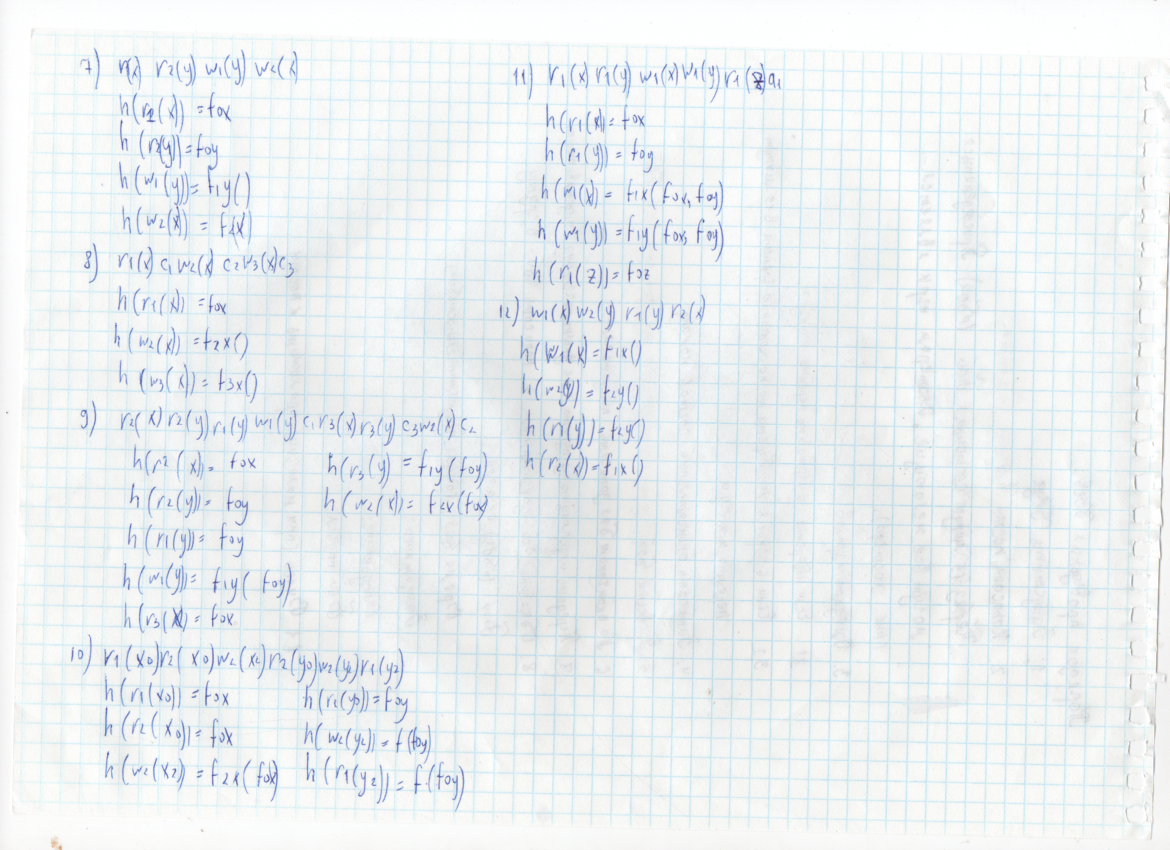 7) r(x) r2(y) w1(y) w2(x)
h(r2(x)) = fox
h(r2(y)) = foy
h(w1(y)) = f1y()
h(w2(x)) = f2(x)
8) r1(x) c1 w2(x) c2 w3(x) c3
h(r1(x)) = fox
h(w2(x)) = f2x()
h(w3(x)) = f3x()
9) r2(x) r2(y) r1(y) w1(y) c1 r3(x) r3(y) c3 w2(x) c2
h(r2(x)) = fox
h(r2(y)) = foy
h(r1(y)) = foy
h(w1(y)) = f1y(foy)
h(r3(x)) = fox
h(r3(y) = f1y(foy)
h(w2(x)) = f2x(fox)
10) r1(x0) r2(x0) w2(x2) r2(y0) w2(y2) r1(y2)
h(r1(x0)) = fox
h(r2(x0)) = fox
h(w2(x2)) = f2x(fox)
h(r2(y0)) = foy
h(w2(y2)) = f(foy)
h(r1(y2)) = f(foy)
11) r1(x) r1(y) w1(x) w1(y) r1(z) a1
h(r1(x)) = fox
h(r1(y)) = foy
h(w1(x)) = f1x(fox, foy)
h(w1(y)) = f1y(fox, foy)
h(r1(z)) = foz
12) w1(x) w2(y) r1(y) r2(x)
h(w1(x) = f1x()
h(w2(y)) = f2y()
h(r1(y)) = f2y()
h(r2(x)) = f1x()